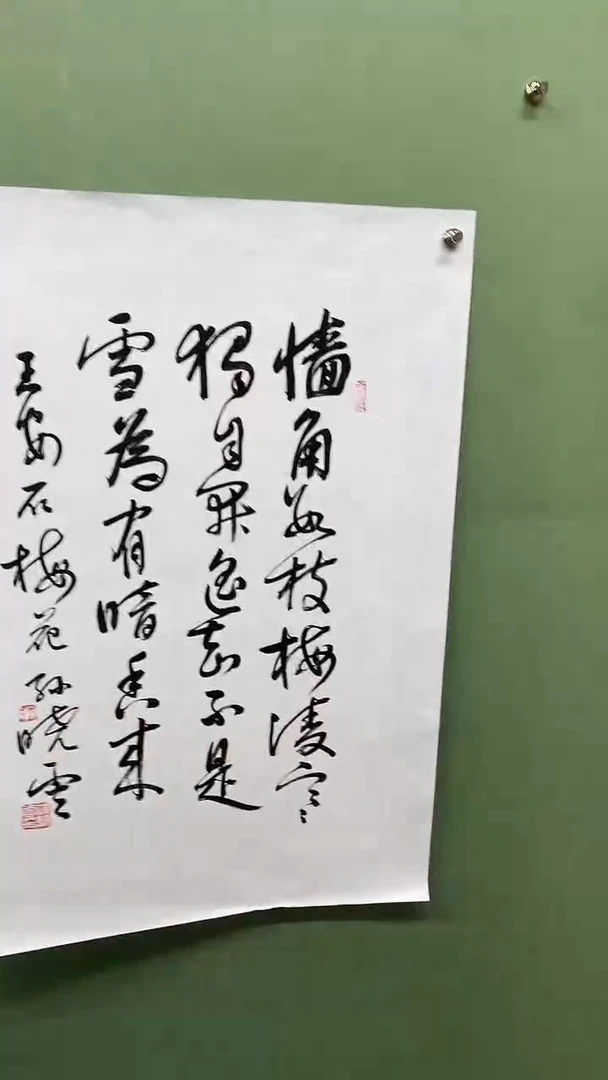 墙角数枝梅凌寒
独自开遥知不是
雪為有暗香来
王安石梅花孙晓雲